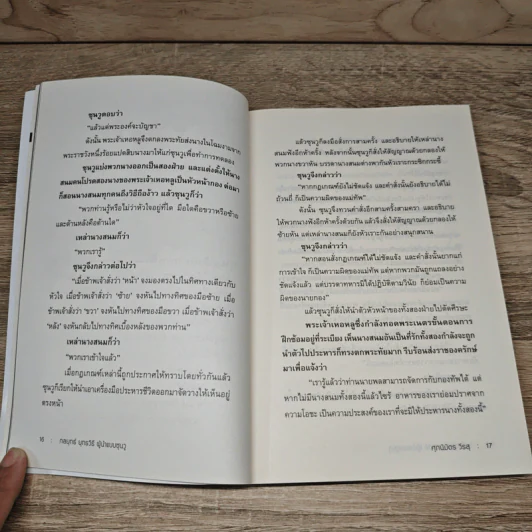 ซุนวูตอบว่า
“แล้วแต่พระองค์จะบัญชา”
ดังนั้น พระเจ้าเหอหลูจึงตกลงพระทัยส่งนางในโฉมงามจาก
พระราชวังหนึ่งร้อยแปดสิบนางมาให้แก่ซุนวูเพื่อทำการทดลอง
ซุนวูแบ่งพวกนางออกเป็นสองฝ่าย และแต่งตั้งให้นาง
สนมคนโปรดสองนางของพระเจ้าเหอหลูเป็นหัวหน้ากอง ต่อมา
ก็สอนนางสนมทุกคนถึงวิธีถือง้าว แล้วซุนวูก็ว่า
“พวกท่านรู้หรือไม่ว่าหัวใจอยู่ที่ใด มือใดคือขวาหรือซ้าย
และด้านหลังคือด้านใด”
เหล่านางสนมก็ว่า
“พวกเรารู้”
ซุนวูจึงกล่าวต่อไปว่า
“เมื่อข้าพเจ้าสั่งว่า ‘หน้า’ จงมองตรงไปในทิศทางเดียวกับ
หัวใจ เมื่อข้าพเจ้าสั่งว่า ‘ซ้าย’ จงหันไปทางทิศของมือซ้าย เมื่อ
ข้าพเจ้าสั่งว่า ‘ขวา’ จงหันไปทางทิศของมือขวา เมื่อข้าพเจ้าสั่งว่า
‘หลัง’ จงหันกลับไปทางทิศเบื้องหลังของพวกท่าน”
เหล่านางสนมก็ว่า
“พวกเราเข้าใจแล้ว”
เมื่อกฎเกณฑ์เหล่านี้ถูกประกาศให้ทราบโดยทั่วกันแล้ว
ซุนวูก็เรียกให้นำเอาเครื่องมือประหารชีวิตออกมาจัดวางให้เห็นอยู่
ตรงหน้า
16 : กลยุทธ์ ยุทธวิธี ผู้นำแบบซุนวู
แล้วซุนวูก็ลงมือสั่งการสามครั้ง และอธิบายให้เหล่านาง
สนมฟังอีกห้าครั้ง หลังจากนั้นซุนวูก็สั่งให้สัญญาณด้วยกลองให้
พวกนางขวาหัน บรรดานางสนมต่างพากันหัวเราะกระซิกกระซี้
ซุนวูจึงกล่าวว่า
“หากกฎเกณฑ์ยังไม่ชัดแจ้ง และคำสั่งนั้นยังอธิบายได้ไม่
ถ้วนถี่ ก็เป็นความผิดของแม่ทัพ”
ดังนั้น ซุนวูจึงทวนคำสั่งสามครั้งสามครา และอธิบาย
ให้พวกนางฟังอีกห้าครั้งด้วยกัน แล้วจึงสั่งให้สัญญาณด้วยกลองให้
ซ้ายหัน แต่เหล่านางสนมก็ยังหัวเราะกันอย่างสนุกสนาน
ซุนวูจึงกล่าวว่า
“หากสอนสั่งกฎเกณฑ์ได้ไม่ชัดแจ้ง และคำสั่งนั้นยากแก่
การเข้าใจ ก็เป็นความผิดของแม่ทัพ แต่หากพวกมันถูกแถลงอย่าง
ชัดแจ้งแล้ว แต่บรรดาทหารมิได้ปฏิบัติตามวินัย ก็ย่อมเป็นความ
ผิดของนายกอง”
แล้วซุนวูก็สั่งให้นำตัวหัวหน้าของทั้งสองฝ่ายไปตัดศีรษะ
พระเจ้าเหอหลูซึ่งกำลังทอดพระเนตรขั้นตอนการ
ฝึกซ้อมอยู่ที่ระเบียง เห็นนางสนมอันเป็นที่รักทั้งสองกำลังจะถูก
นำตัวไปประหารก็ทรงตกพระทัยมาก รีบร้อนส่งราชองครักษ์
มาเพื่อแจ้งว่า
“เรารู้แล้วว่าท่านนายพลสามารถจัดการกับกองทัพได้ แต่
หากไม่มีนางสนมทั้งสองนี้แล้วไซร้ อาหารของเราย่อมปราศจาก
ความโอชะ เป็นความประสงค์ของเราที่จะมิให้ประหารนางทั้งสองนี้”
ศุภนิมิตร วิรสุ : 17